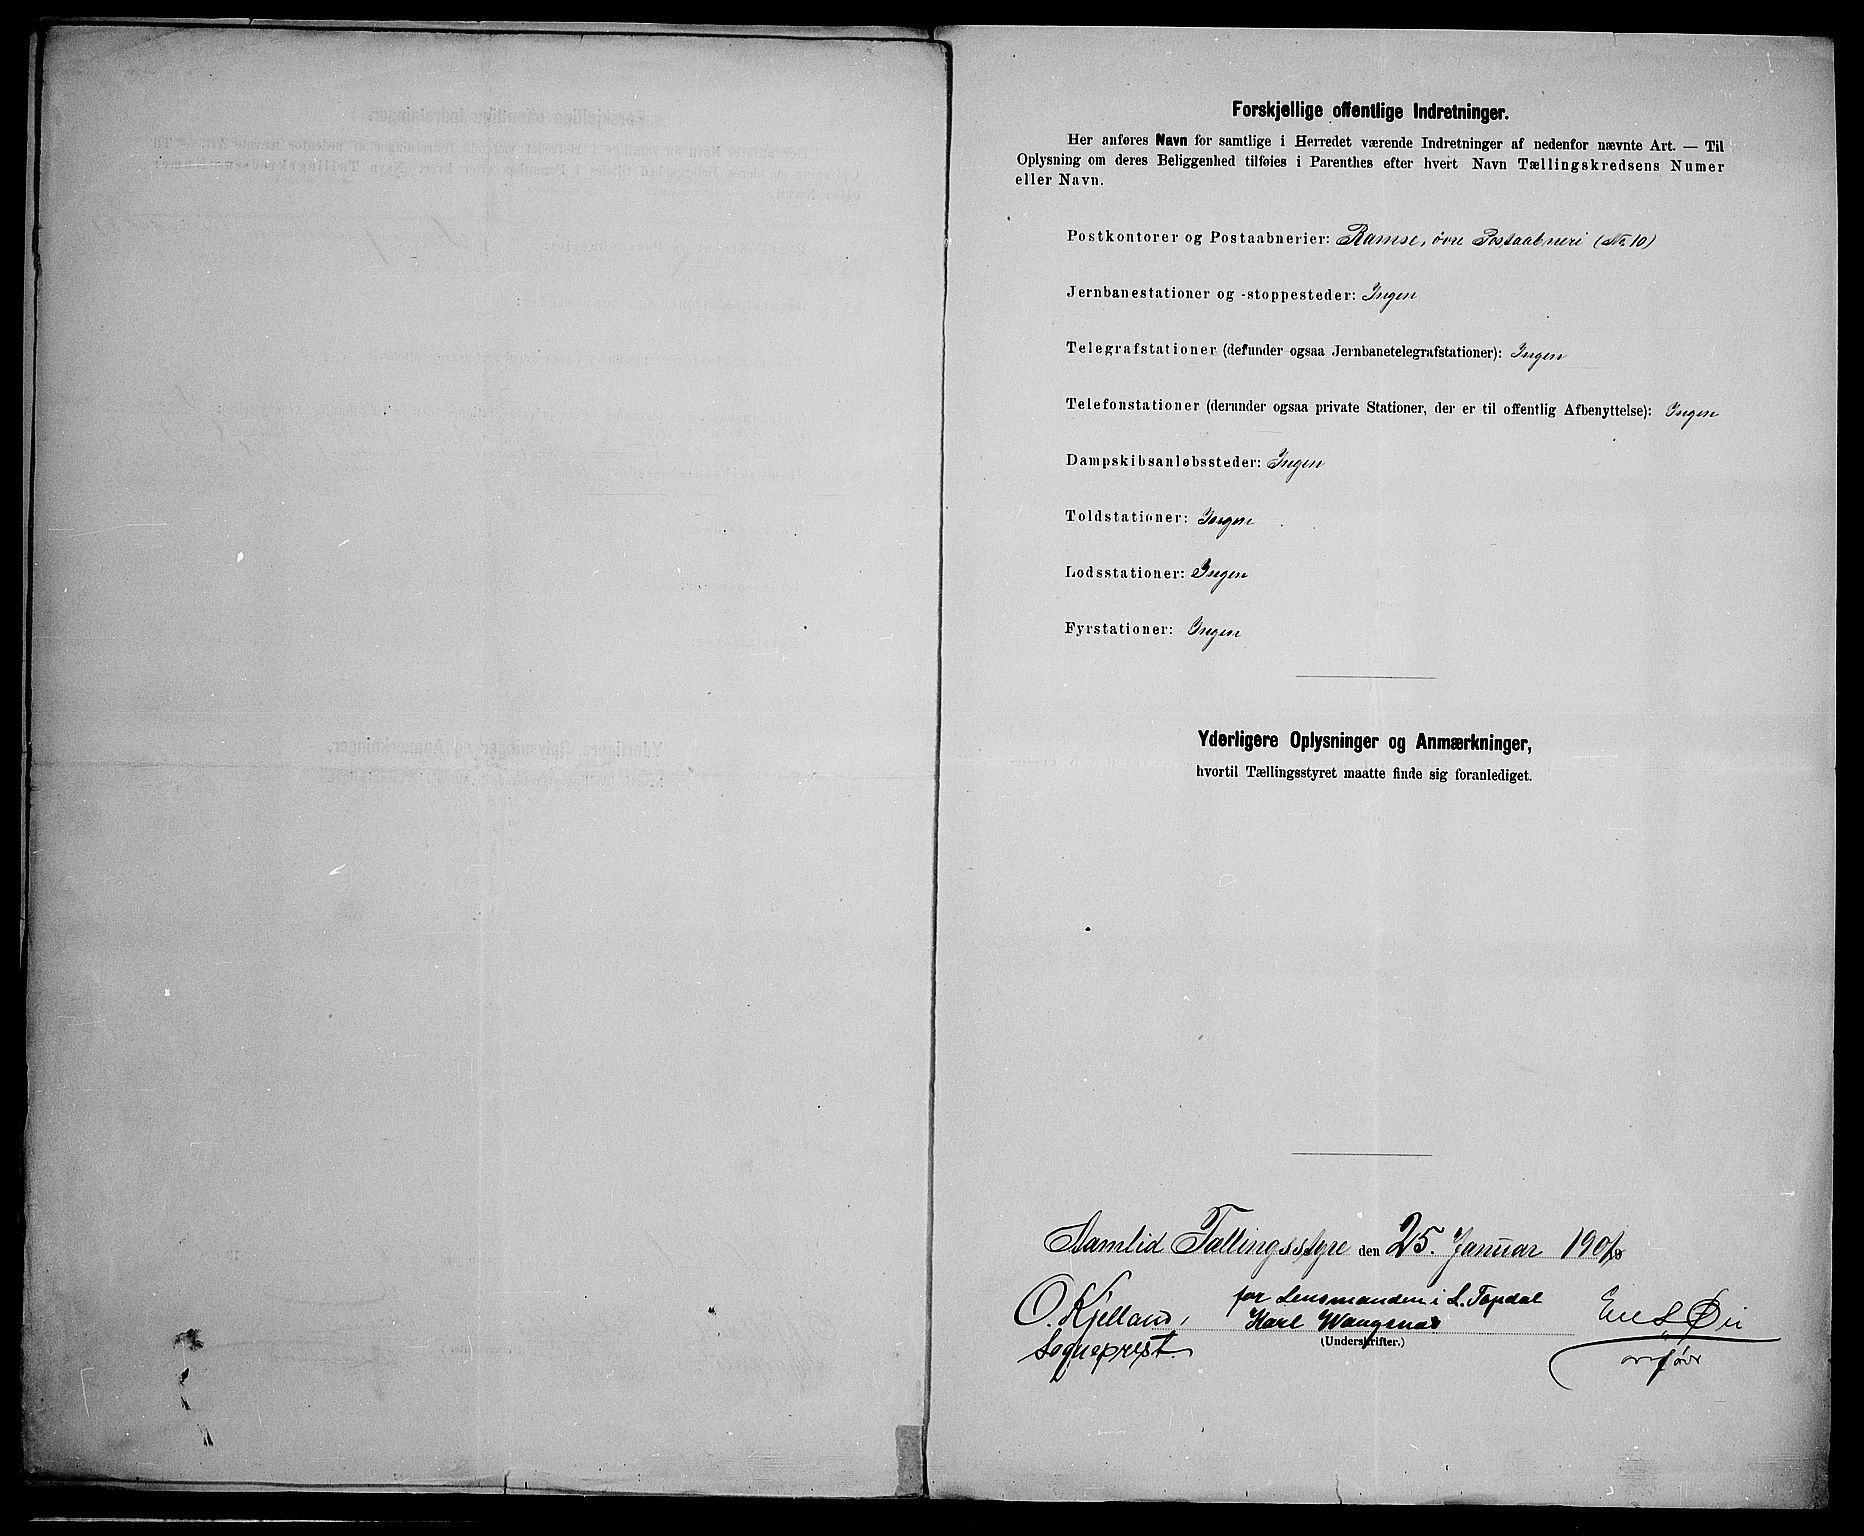 Forskjellige offentlige Indretninger.
Her anføres Navn for samtlige i Herredet værende Indretninger af nedenfor nævnte Art. — Til
Oplysning om deres Beliggenhed tilføies i Parenthes efter hvert Navn Tællingskredsens Numer
eller Navn.
Postkontorer og Postaabnerier: Ramse, övre Postaabneri (No 10)
Jernbanestationer og -stoppesteder: Ingen
Telegrafstationer (derunder ogsaa Jernbanetelegrafstationer): Ingen
Telefonstationer (derunder ogsaa private Stationer, der er til offentlig Afbenyttelse): Ingen
Dampskibsanløbssteder: Ingen
Toldstationer: Ingen
Lodsstationer: Ingen
Fyrstationer: Ingen
Yderligere Oplysninger og Anmærkninger,
hvortil Tællingsstyret maatte finde sig foranlediget.
Tællingsstyre den 25. Januar 1901
O. Kjelland, for Lensmanden i L. Topdal
Sogneprest. Karl Wangsnæs
(Underskrifter.)